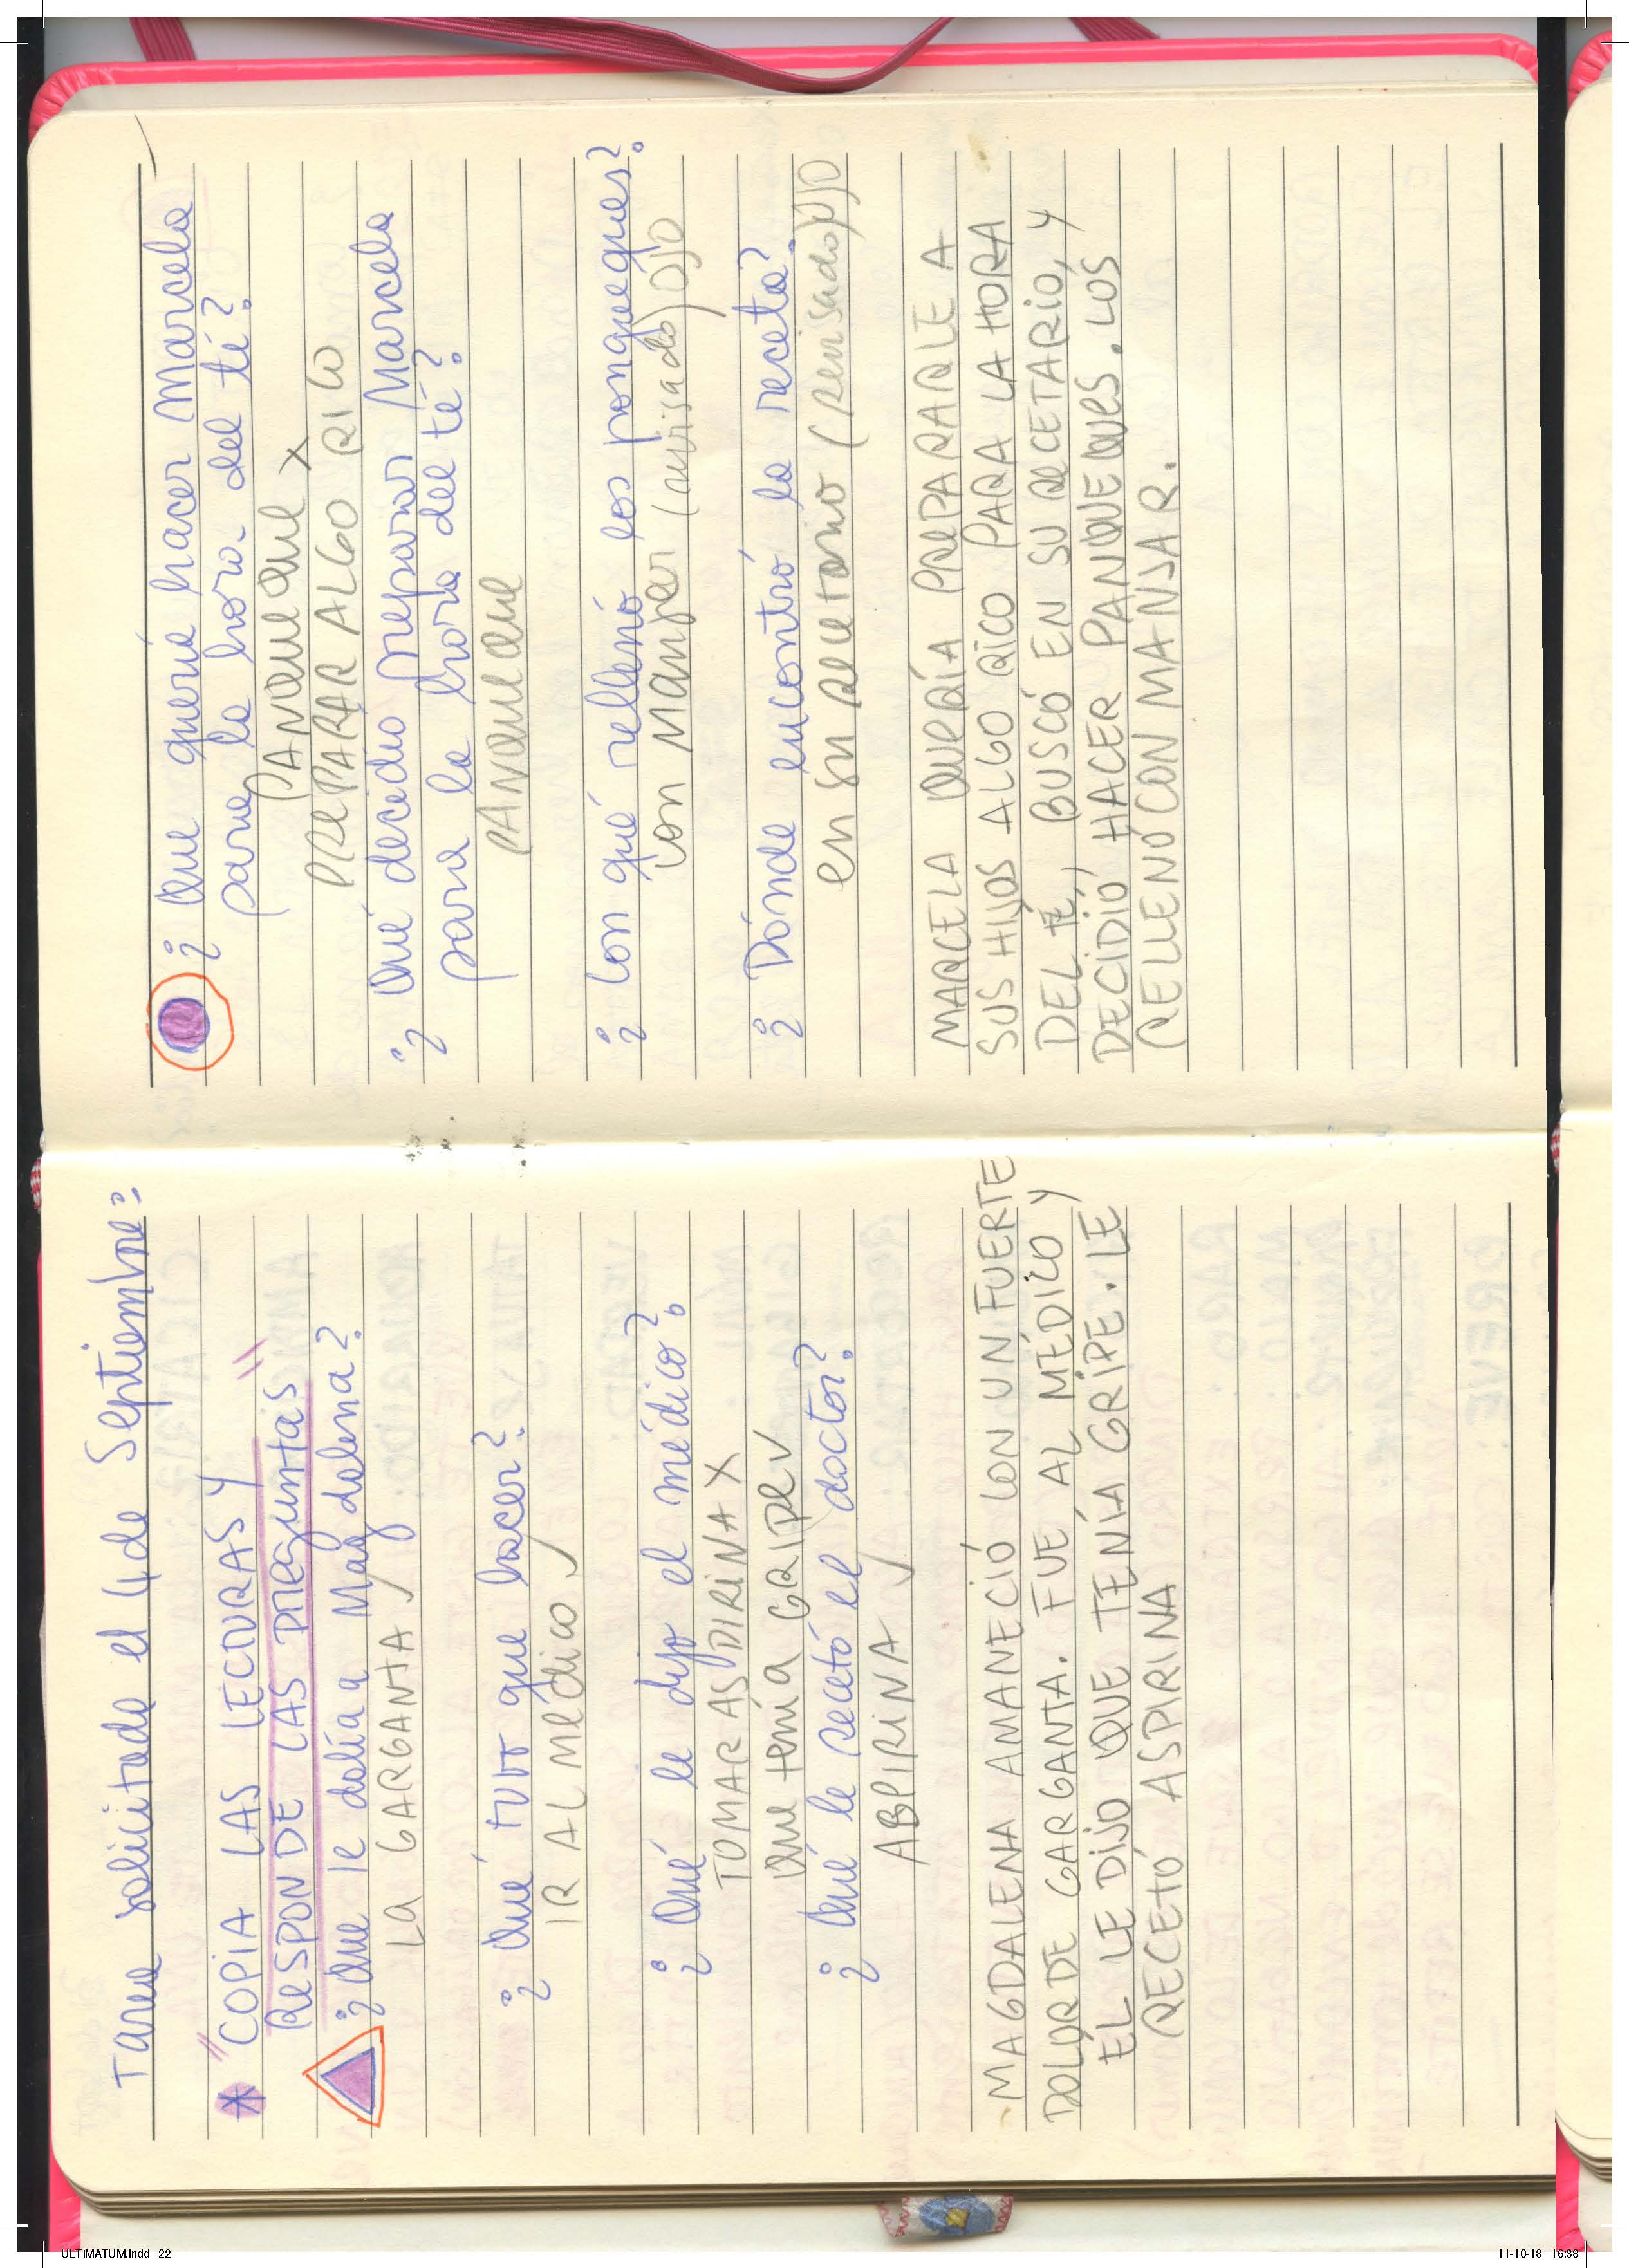 Tarea solicitada el 4 de Septiembre:
* "COPIA LAS LECTURAS Y
RESPONDE LAS preguntas"
¿Que le dolía a Magdalena?
LA GARGANTA
¿Qué tuvo que hacer?
IR AL MEdico
¿Qué le dijo el médico?
TOMAR ASDIRINA X
Que tenía GRIPE
¿Qué le recetó el doctor?
ABPIRINA
MAGDALENA AMANECIÓ CON UN FUERTE
DOLOR DE GARGANTA. FUE AL MÉDICO Y
ÉL LE DIJO QUE TENÍA GRIPE. LE
RECETÓ ASPIRINA
¿Que quería hacer Marcela
para la hora del té?
PANqueque X
PREPARAR ALGO RICO
¿Qué decidió preparar Marcela
para la hora del té?
PANqueque
¿Con qué rellenó los panqueques?
con Manjar (avisado) OJO
¿Dónde encontró la receta?
en su recetario (revisado) OJO
MARCELA QUERÍA PREPARARLE A
SUS HIJOS ALGO RICO PARA LA HORA
DEL TÉ, BUSCÓ EN SU RECETARIO, Y
DECIDIÓ HACER PANQUEQUES. LOS
RELLENÓ CON MANJAR.
ULTIMATUM.indd 22
11-10-18 16:38